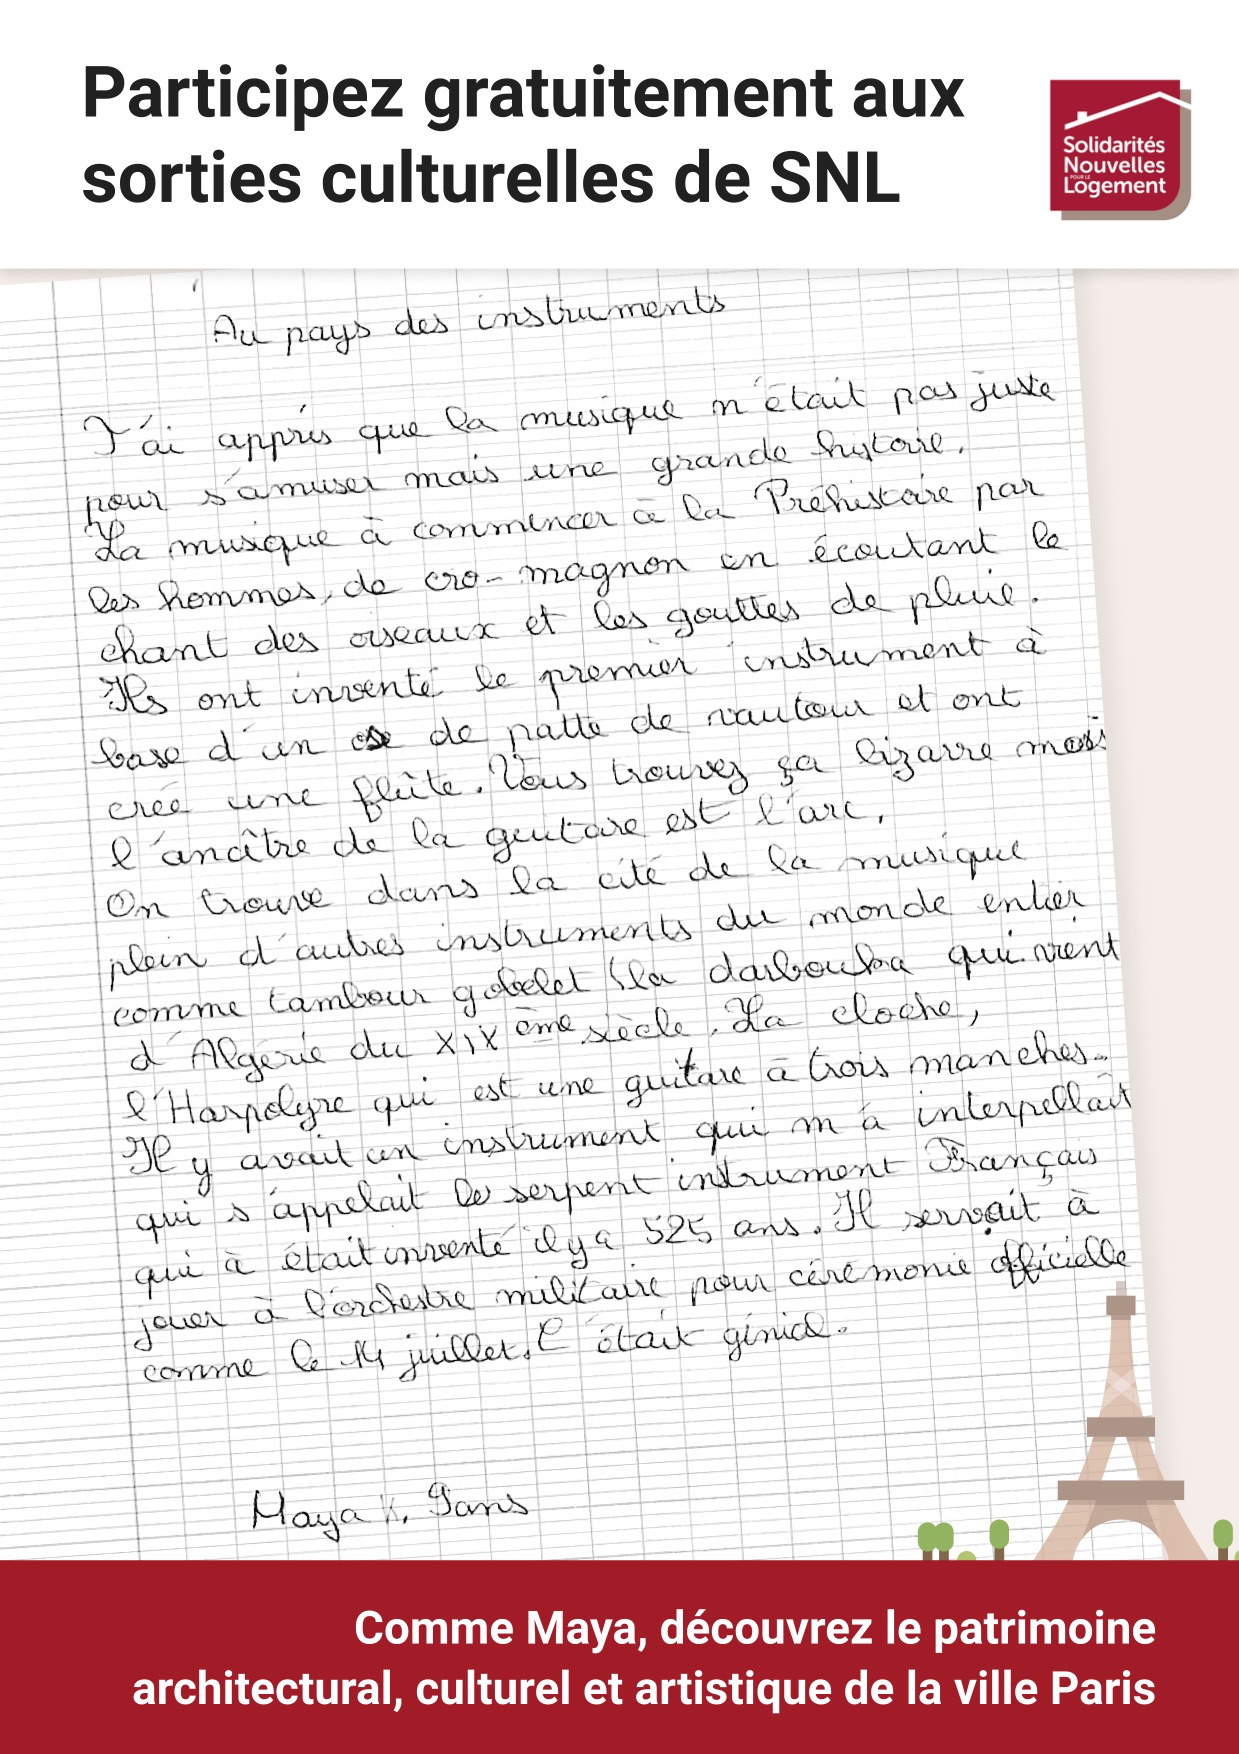 Participez gratuitement aux
sorties culturelles de SNL
Solidarités
Nouvelles
POUR LE
Logement
Au pays des instruments
J'ai appris que la musique n'était pas juste
pour s'amuser mais une grande hystoire.
La musique à commencer à la Préhistoire par
les hommes, de cro-magnon en écoutant le
chant des oiseaux et les gouttes de pluie.
Ils ont inventé le premier instrument à
base d'un os de patte de vautour et ont
créé une flûte. Vous trouvez ça bizarre mais
l'ancître de la guitare est l'arc.
On trouve dans la cité de la musique
plein d'autres instruments du monde entier
comme tambour gobelet (la darbouka qui vient
d'Algérie du XIXème siècle. La cloche,
l'Harpolyre qui est une guitare à trois manches.
Il y avait un instrument qui m'a interpellait
qui s'appelait le serpent instrument Français
qui à était inventé il y a 525 ans. Il servait à
jouer à l'orchestre militaire pour cérémonie officielle
comme le 14 juillet. C'était génial.
Maya K.
Comme Maya, découvrez le patrimoine
architectural, culturel et artistique de la ville Paris